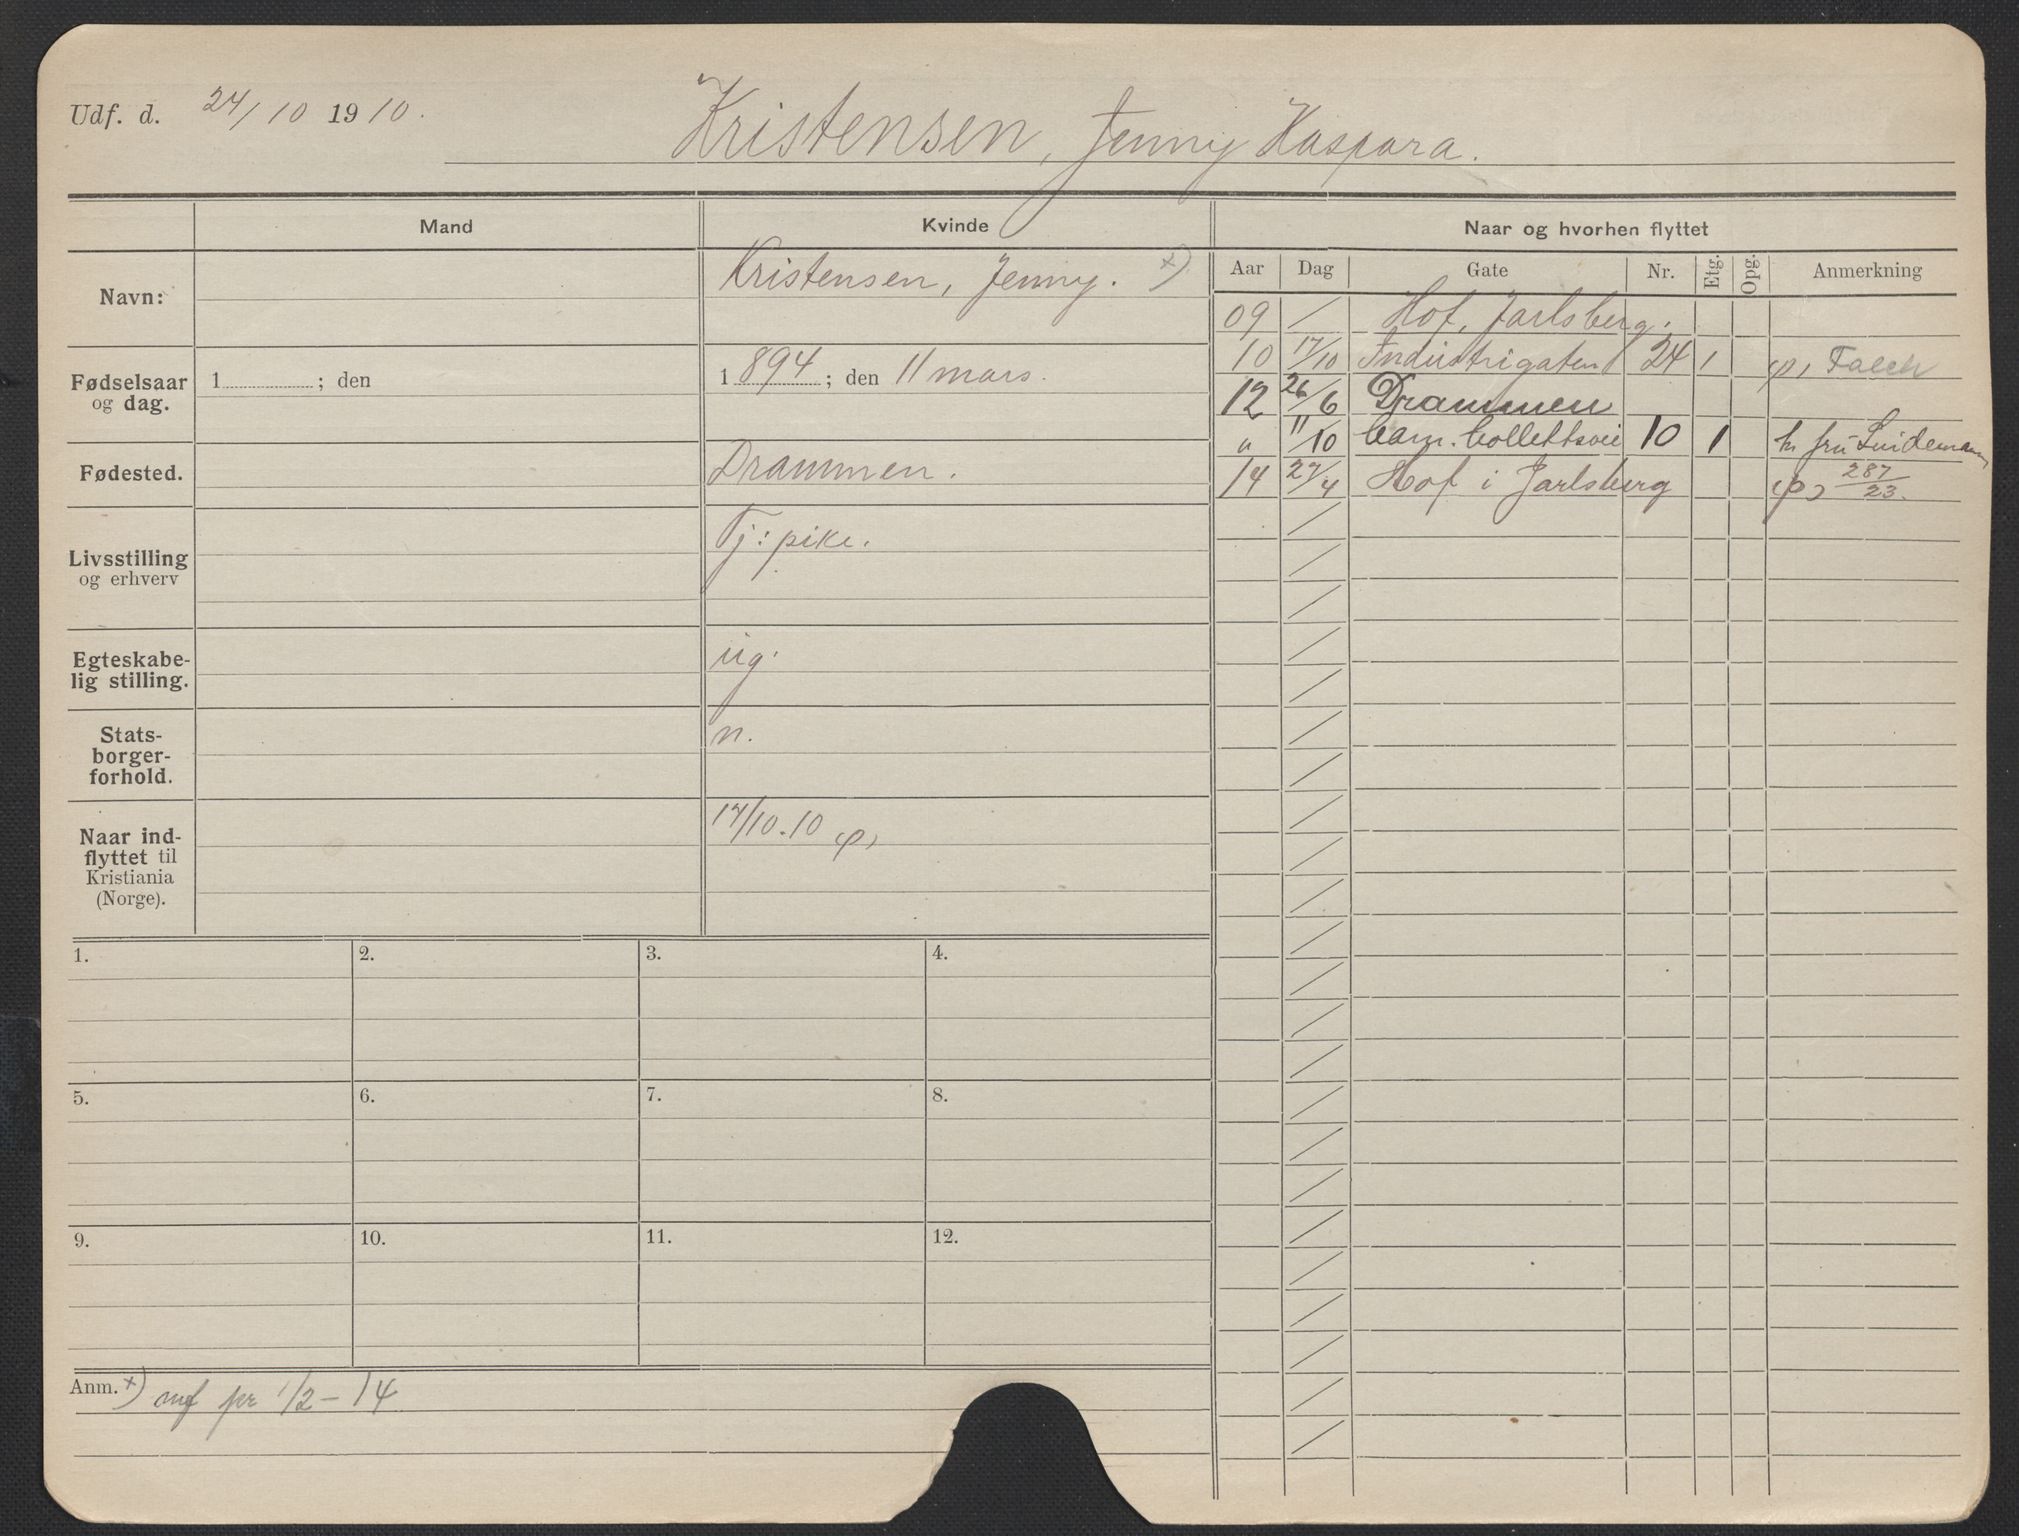 Udf. d. 24/10 1910.
Kristensen, Jenny Kaspara.
Mand
Kvinde
Naar og hvorhen flyttet
Navn:
Kristensen, Jenny. x)
Fødselsaar
og dag.
1 ; den
1 894 ; den 11 mars.
Fødested.
Drammen.
Livsstilling
og erhverv
Tj: pike.
Egteskabe-
lig stilling.
ug.
Stats-
borger-
forhold.
n.
Naar ind-
flyttet til
Kristiania
(Norge).
17/10.10
Aar Dag Gate Nr. Etg. Opg. Anmerkning
09 / Hof, Jarlsberg.
10 17/10 Industrigaten 24 1 Falch
12 26/6 Drammen
" 11/10 Cam. Collettsvei 10 1 fru Lindemann
14 27/4 Hof i Jarlsberg 287/23.
1. 2. 3. 4.
5. 6. 7. 8.
9. 10. 11. 12.
Anm. x) mf pr 1/2-14